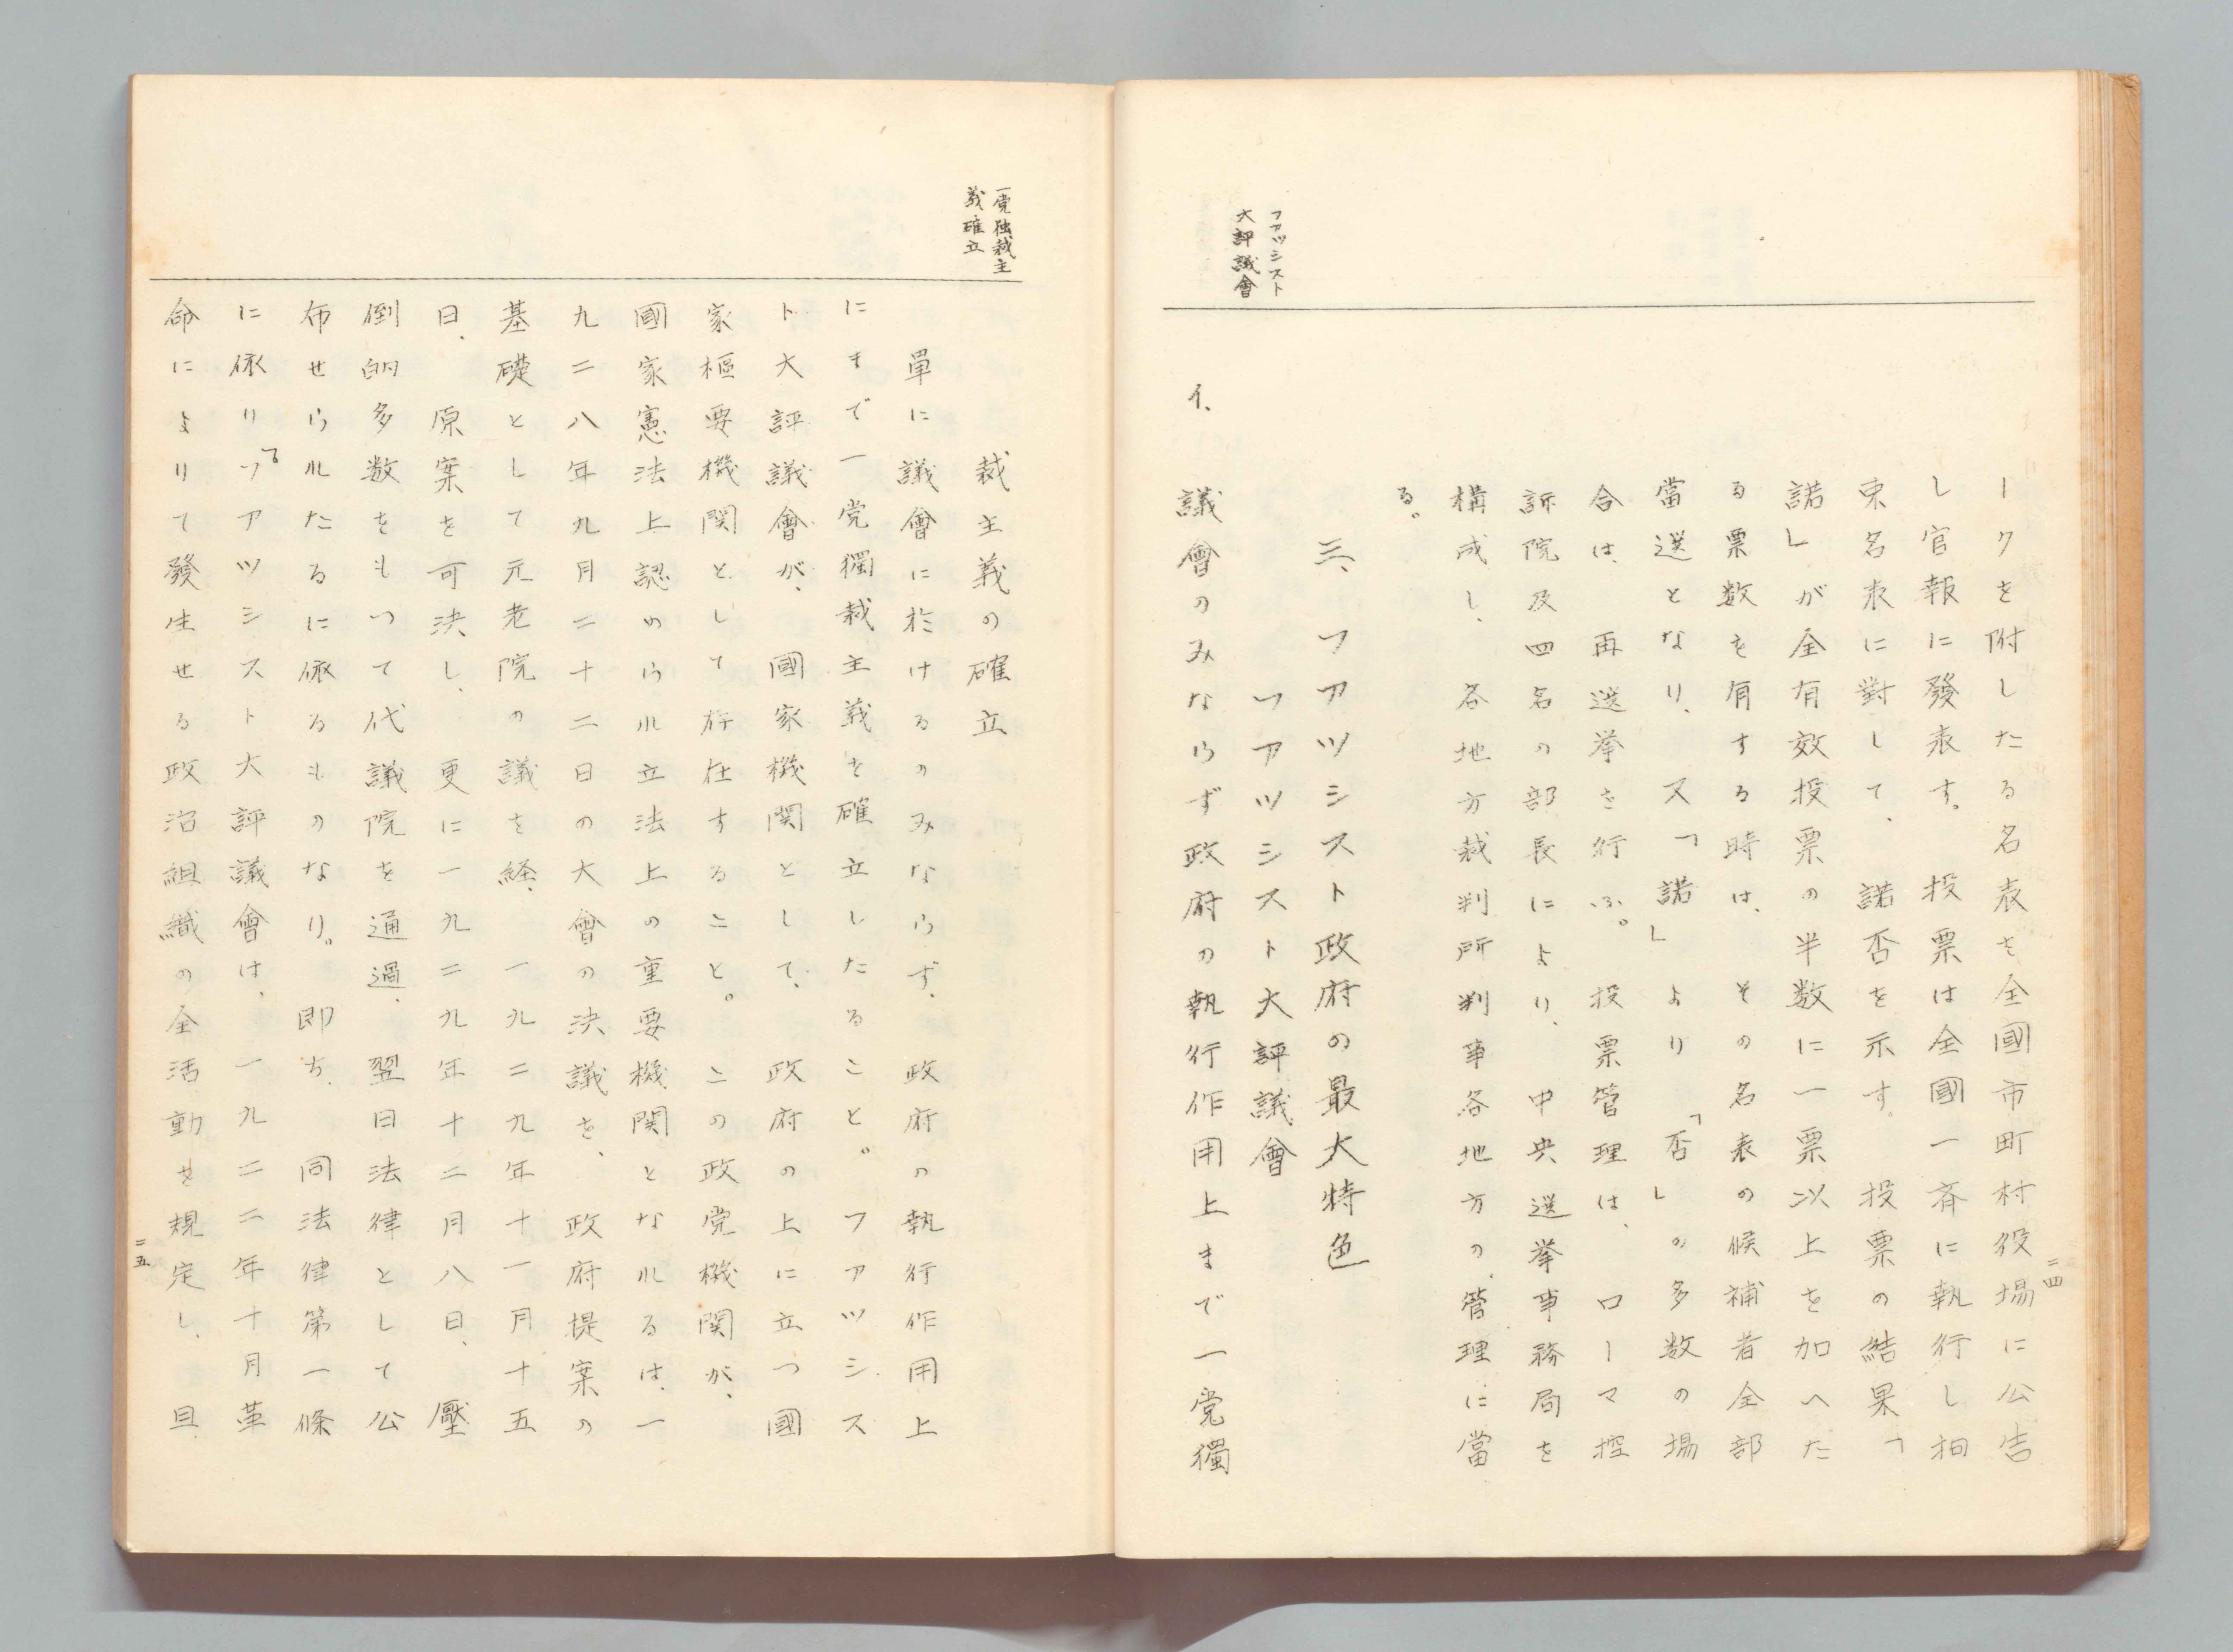 二四
ークを附したる名表を全國市町村役場に公告
し官報に發表す。投票は全國一斉に執行し拘
束名表に對して、諾否を示す。投票の結果「
諾」が全有效投票の半数に一票以上を加へた
る票数を有する時は、その名表の候補者全部
當選となり、又「諾」より「否」の多数の場
合は、再選挙を行ふ。投票管理は、ローマ控
訴院及四名の部長により、中央選挙事務局を
構成し、各地方裁判所判事各地方の、管理に當
る。
三、ファツシスト政府の最大特色
ファツシスト
大評議會
ファツシスト大評議會
イ、議會のみならず政府の執行作用上まで一党獨
一党独裁主
義確立
裁主義の確立
單に議會に於けるのみならず、政府の執行作用上
にまで一党獨裁主義を確立したること。ファツシス
ト大評議會が、國家機関として、政府の上に立つ國
家樞要機関として存在すること。この政党機関が、
國家憲法上認められ立法上の重要機関となれるは、一
九二八年九月二十二日の大會の決議を、政府提案の
基礎として元老院の議を経、一九二九年十一月十五
日、原案を可決し、更に一九二九年十二月八日、壓
倒的多数をもつて代議院を通過、翌日法律として公
布せられたるに依るものなり。即ち、同法律第一條
に依り「ファツシスト大評議會は、一九二二年十月革
命によりて發生せる政治組織の全活動を規定し、且
二五